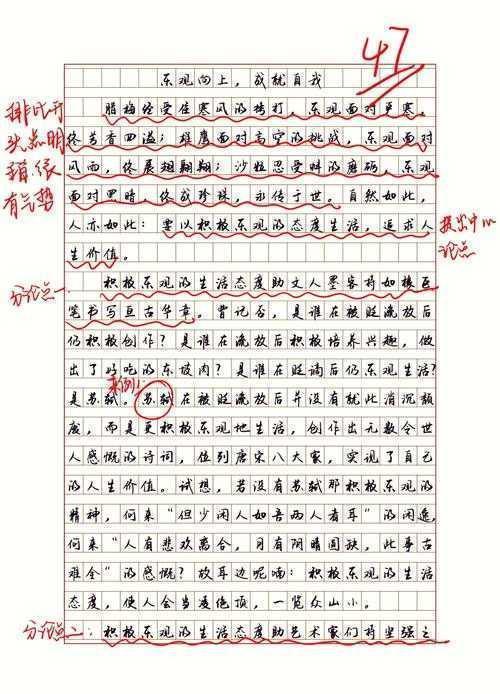 47
乐观向上，成就自我
腊梅经受住寒风的拷打，乐观面对严寒，
终芳香四溢；雄鹰面对高空的挑战，乐观面对
风雨，终展翅翱翔；沙粒忍受蚌的磨砺，乐观
面对黑暗，终成珍珠，永传于世。自然如此，
人亦如此：要以积极乐观的态度生活，追求人
生价值。
排比开
头点明
有气势
提出中心
论点
分论点一
积极乐观的生活态度助文人墨客将如椽巨
笔书写亘古华章。曾记否，是谁在被贬流放后
仍积极创作？是谁在流放后积极培养兴趣，做
出了好吃的东坡肉？是谁在贬谪后仍乐观生活？
举例
是苏轼。苏轼在被贬流放后并没有就此消沉颓
废，而是更积极乐观地生活，创作出无数令世
人感慨的诗词，位列唐宋八大家，实现了自己
的人生价值。试想，若没有苏轼那积极乐观的
精神，何来“但少闲人如吾两人者耳”的闲逸，
何来“人有悲欢离合，月有阴晴圆缺，此事古
难全”的感慨？故耳边呢喃：积极乐观的生活
态度，使人会当凌绝顶，一览众山小。
分论点二：
积极乐观的生活态度助艺术家们将坚强之